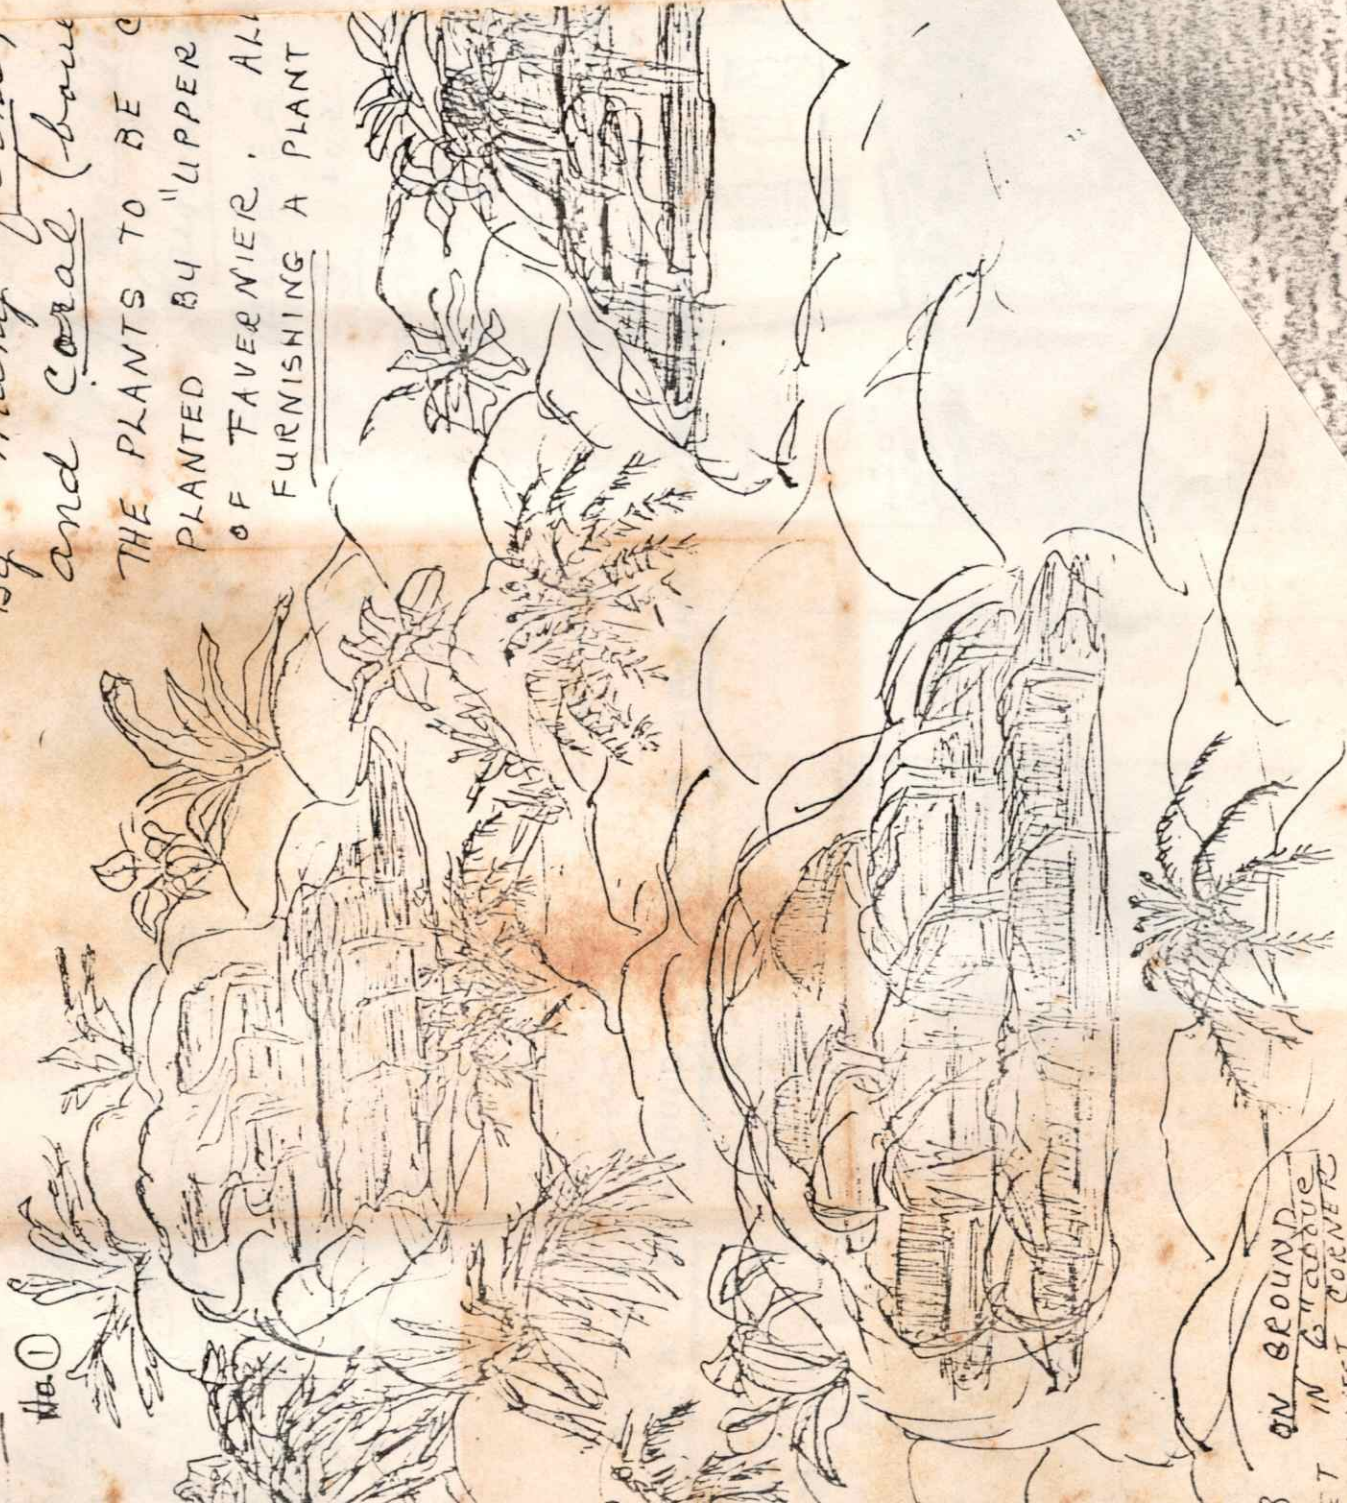 and coral (
THE PLANTS TO BE C
PLANTED BY "UPPER
OF TAVERNIER. AL
FURNISHING A PLANT
No ①
ON GROUND
IN 6" above
CORNER